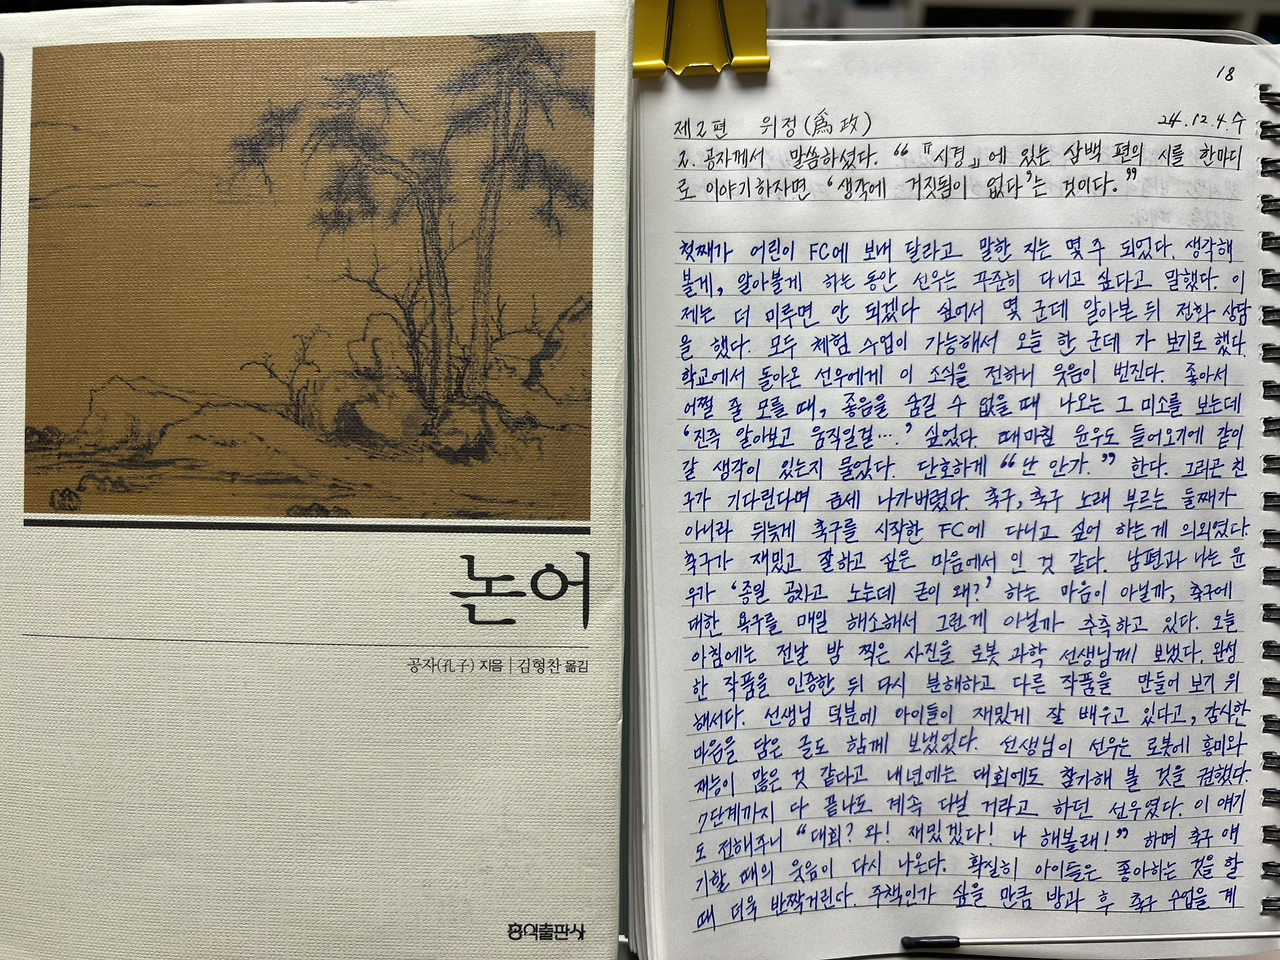 논어
공자(孔子) 지음 | 김형찬 옮김
홍익출판사
18
제2편 위정(爲政) 24.12.4.수
2. 공자께서 말씀하셨다. “『시경』에 있는 삼백 편의 시를 한마디
로 이야기하자면 ‘생각에 거짓됨이 없다’는 것이다.”
첫째가 어린이 FC에 보내 달라고 말한 지는 몇 주 되었다. 생각해
볼게, 알아볼게 하는 동안 선우는 꾸준히 다니고 싶다고 말했다. 이
제는 더 미루면 안 되겠다 싶어서 몇 군데 알아본 뒤 전화 상담
을 했다. 모두 체험 수업이 가능해서 오늘 한 군데 가 보기로 했다.
학교에서 돌아온 선우에게 이 소식을 전하니 웃음이 번진다. 좋아서
어쩔 줄 모를 때, 좋음을 숨길 수 없을 때 나오는 그 미소를 보는데
‘진즉 알아보고 움직일걸….’ 싶었다. 때마침 윤우도 들어오기에 같이
갈 생각이 있는지 물었다. 단호하게 “난 안가.” 한다. 그러곤 친
구가 기다린다며 금세 나가버렸다. 축구, 축구 노래 부르는 둘째가
아니라 뒤늦게 축구를 시작한 FC에 다니고 싶어 하는 게 의외였다.
축구가 재밌고 잘하고 싶은 마음에서 인 것 같다. 남편과 나는 윤
우가 ‘종일 공차고 노는데 굳이 왜?’ 하는 마음이 아닐까, 축구에
대한 욕구를 매일 해소해서 그런게 아닐까 추측하고 있다. 오늘
아침에는 전날 밤 찍은 사진을 로봇 과학 선생님께 보냈다. 완성
한 작품을 인증한 뒤 다시 분해하고 다른 작품을 만들어 보기 위
해서다. 선생님 덕분에 아이들이 재밌게 잘 배우고 있다고, 감사한
마음을 담은 글도 함께 보냈었다. 선생님이 선우는 로봇에 흥미와
재능이 많은 것 같다고 내년에는 대회에도 참가해 볼 것을 권했다.
7단계까지 다 끝나도 계속 다닐 거라고 하던 선우였다. 이 얘기
도 전해주니 “대회? 와! 재밌겠다! 나 해볼래!” 하며 축구 얘
기할 때의 웃음이 다시 나온다. 확실히 아이들은 좋아하는 것을 할
때 더욱 반짝거린다. 주책인가 싶을 만큼 방과 후 축구 수업을 계